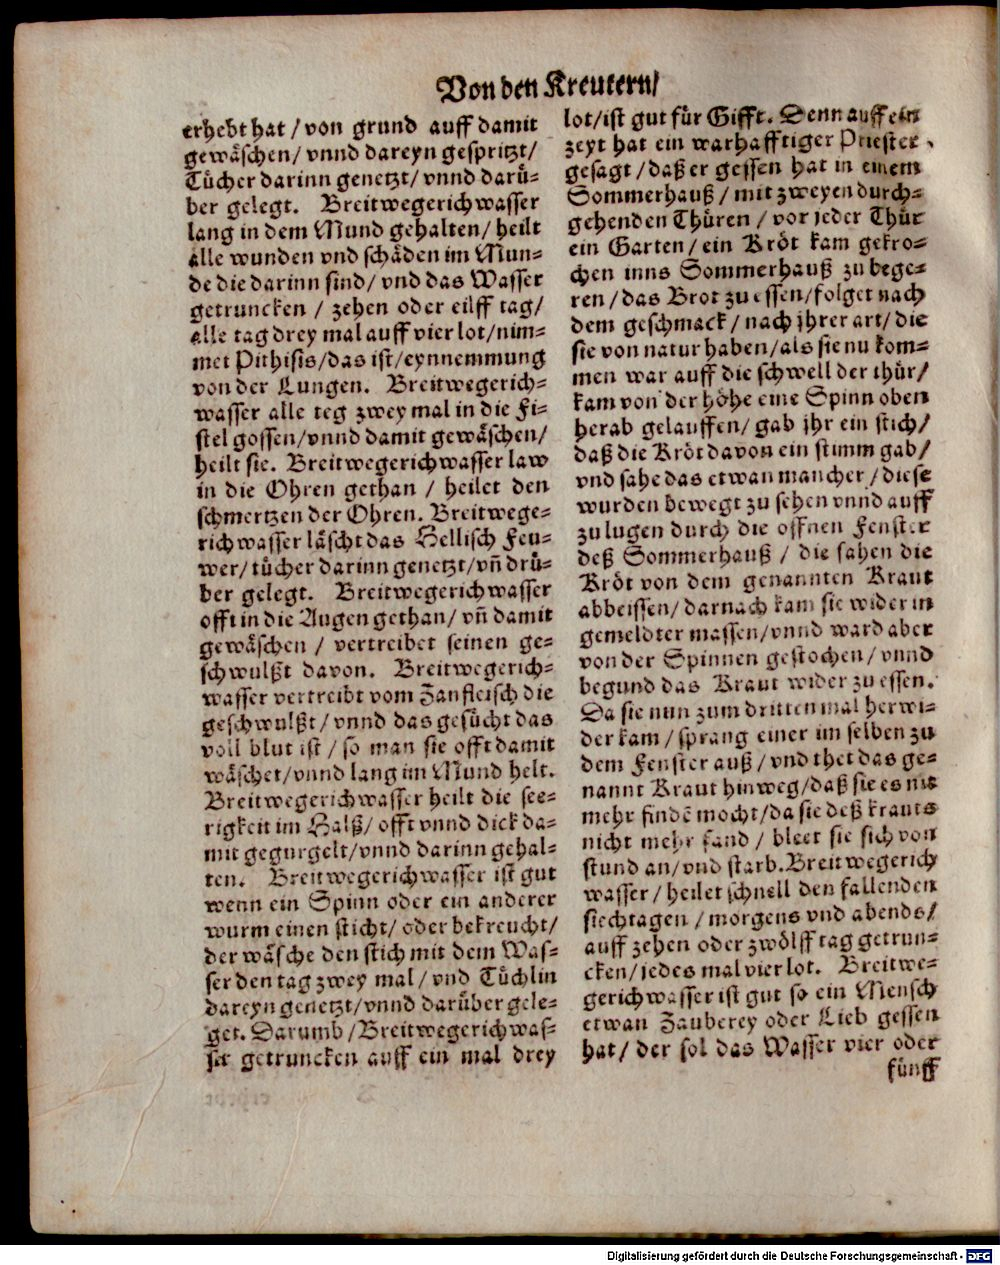 Von den Kreutern/
erhebt hat / von grund auff damit
gewäschen/ vnnd dareyn gespritzt/
Tücher darinn genetzt/ vnnd darü-
ber gelegt. Breitwegerichwasser
lang in dem Mund gehalten/ heilt
alle wunden vnd schäden im Mun-
de die darinn sind/ vnd das Wasser
getruncken / zehen oder eilff tag/
alle tag drey mal auff vier lot/nim-
met Pithisis/das ist/eynnemmung
von der Lungen. Breitwegerich-
wasser alle teg zwey mal in die Fi-
stel gossen/vnnd damit gewäschen/
heilt sie. Breitwegerichwasser law
in die Ohren gethan / heilet den
schmertzen der Ohren. Breitwege-
richwasser läscht das Hellisch Feu-
wer/ tücher darinn genetzt/vñ drü-
ber gelegt. Breitwegerichwasser
offt in die Augen gethan/ vñ damit
gewäschen / vertreibet seinen ge-
schwulßt davon. Breitwegerich-
wasser vertreibt vom Zanfleisch die
geschwulßt/ vnnd das gesücht das
voll blut ist / so man sie offt damit
wäschet/vnnd lang im Mund helt.
Breitwegerichwasser heilt die see-
rigkeit im Halß/ offt vnnd dick da-
mit gegurgelt/vnnd darinn gehal-
ten. Breitwegerichwasser ist gut
wenn ein Spinn oder ein anderer
wurm einen sticht/ oder bekreucht/
der wäsche den stich mit dem Was-
ser den tag zwey mal / vnd Tüchlin
dareyn genetzt/vnnd darüber gele-
get. Darumb / Breitwegerichwas-
ser getruncken auff ein mal drey
lot/ist gut für Gifft. Denn auff ein
zeyt hat ein warhafftiger Priester
gesagt / daß er gessen hat in einem
Sommerhauß / mit zweyen durch-
gehenden Thüren / vor jeder Thür
ein Garten/ ein Kröt kam gekro-
chen inns Sommerhauß zu bege-
ren / das Brot zu essen/folget nach
dem geschmack / nach jhrer art/ die
sie von natur haben/als sie nu kom-
men war auff die schwell der thür/
kam von der höhe eine Spinn oben
herab gelauffen/ gab jhr ein stich/
daß die Kröt davon ein stimm gab/
vnd sahe das etwan mancher / diese
wurden bewegt zu sehen vnnd auff
zu lugen durch die offnen Fenster
deß Sommerhauß / die sahen die
Kröt von dem genannten Kraut
abbeissen/ darnach kam sie wider in
gemeldter massen/vnnd ward aber
von der Spinnen gestochen / vnnd
begund das Kraut wider zu essen.
Da sie nun zum dritten mal herwi-
der kam / sprang einer im selben zu
dem Fenster auß / vnd thet das ge-
nannt Kraut hinweg/daß sie es nit
mehr findẽ mocht/da sie deß krauts
nicht mehr fand / bleet sie sich von
stund an/vnd starb. Breitwegerich
wasser / heilet schnell den fallenden
siechtagen / morgens vnd abends/
auff zehen oder zwölff tag getrun-
cken/ jedes mal vier lot. Breitwe-
gerichwasser ist gut so ein Mensch
etwan Zauberey oder Lieb gessen
hat/ der sol das Wasser vier oder
fünff
Digitalisierung gefördert durch die Deutsche Forschungsgemeinschaft - DFG